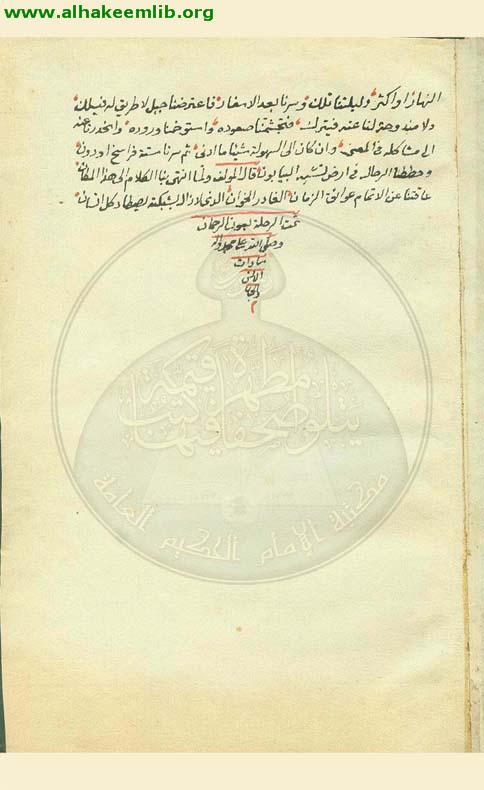 www.alhakeemlib.org
النهار او اكثر وليلتنا تلك وسرنا بعد الاسفار فاعترضنا جبل لا طريق له فيسلك
ولا مندوحة لنا عنه فيترك فتجشمنا صعوده واستوخمنا وروده وانحدرنا عنه
الى مشاكله في المعنى وان كان الى السهولة شيئا ما ادنى ثم سرنا ستة فراسخ او دون
وحططنا الرحال في ارض تشبه البيابون قال المولف ولما انتهى بنا الكلام الى هذا المكان
عاقتنا عن الاتمام عوائق الزمان الغادر الخوان الذي جاز الشبكة يصطاد كل انسان
تمت الرحلة بعون الرحمان
وصلى الله على محمد واله
سادات
الانس
والجان
م
يتلو صحفا مطهرة فيها كتب قيمة
مكتبة الإمام الحكيم العامة